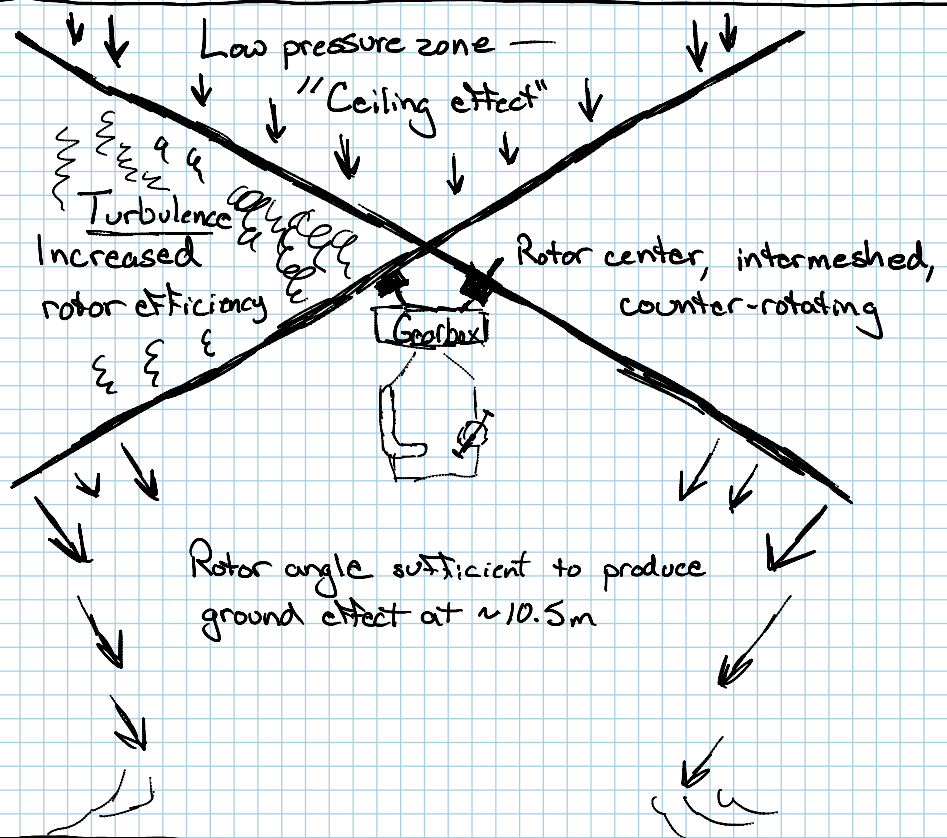 Low pressure zone —
"Ceiling effect"
Turbulence
Increased
rotor efficiency
Rotor center, intermeshed,
counter-rotating
Gearbox
Rotor angle sufficient to produce
ground effect at ~10.5m